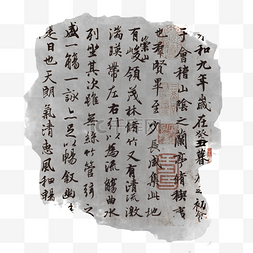 和九年歲在癸丑暮初
于會稽山陰之蘭亭脩禊
也群賢畢至少長咸集此地
有崇山峻領茂林脩竹又有清流激
湍暎帶左右引以為流觴曲水
列坐其次雖無絲竹管弦之
盛一觴一詠亦足以暢叙幽
是日也天朗氣清惠風和暢